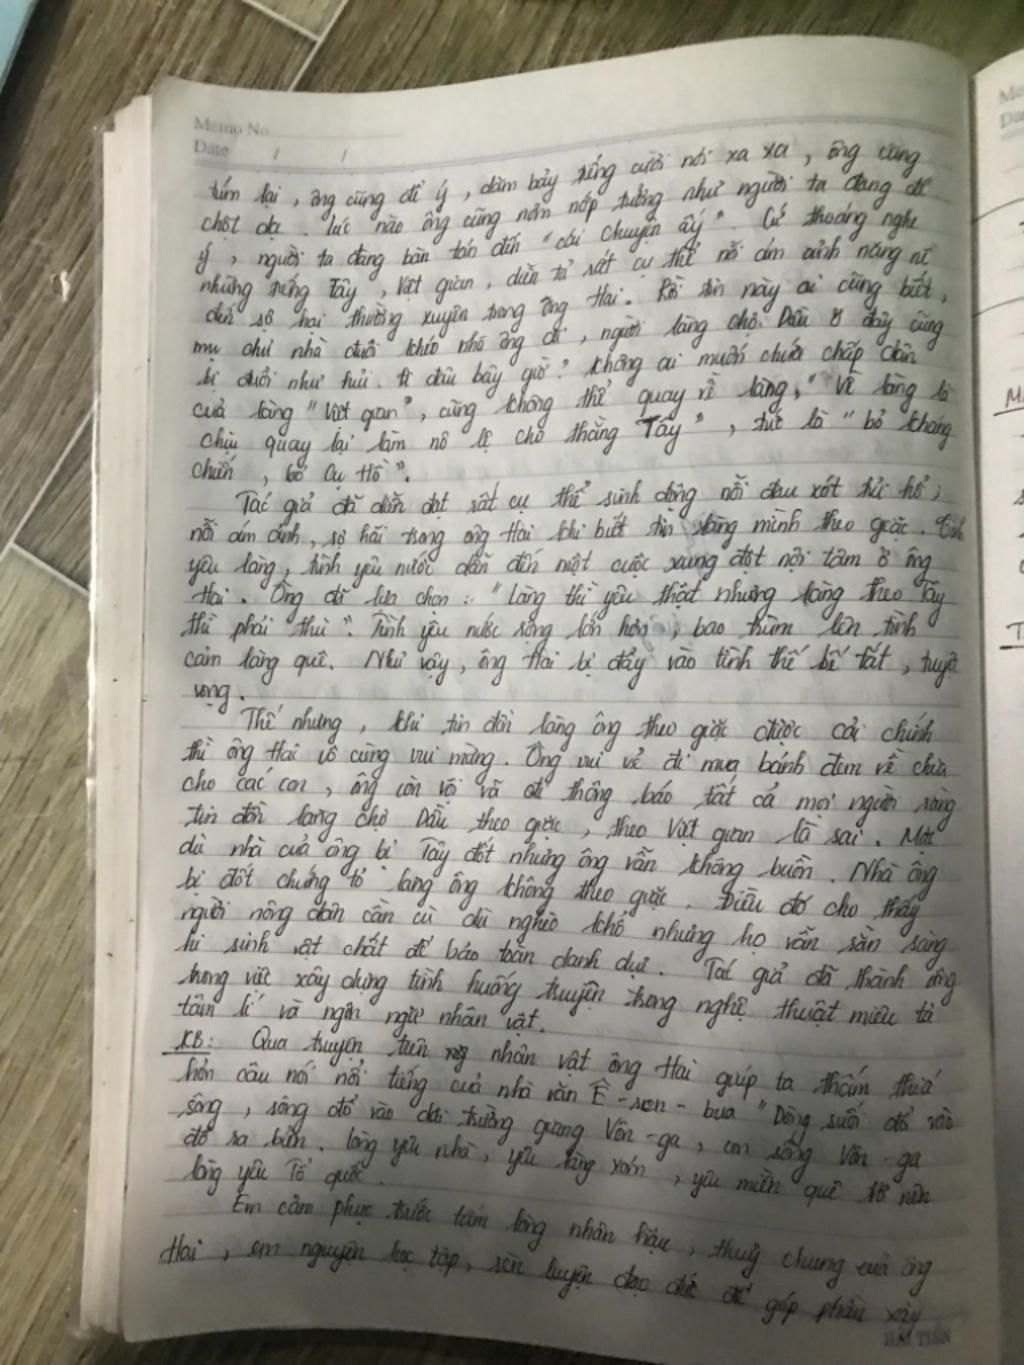 Memo No.
Date / /
túm lại, ông cũng để ý, dăm bảy tiếng cười nói xa xa, ông cũng
chột dạ. lúc nào ông cũng nơm nớp tưởng như người ta đang để
ý, người ta đang bàn tán đến "cái chuyện ấy". Cứ thoáng nghe
những tiếng Tây, Việt gian, diễn tả rất cụ thể nỗi ám ảnh nặng nề
đến sợ hại thường xuyên trong ông Hai. Rồi tin này ai cũng biết,
mụ chủ nhà đuổi khéo nhà ông đi, người làng chợ Dầu ở đây cũng
bị đuổi như hủi. đi đâu bây giờ? không ai muốn chứa chấp dân
của làng "Việt gian", cũng không thể quay về làng, "Về làng là
chịu quay lại làm nô lệ cho thằng Tây", tức là "bỏ kháng
chiến, bỏ Cụ Hồ".
Tác giả đã diễn đạt rất cụ thể sinh động nỗi đau xót tủi hổ,
nỗi ám ảnh, sợ hãi trong ông Hai khi biết tin làng mình theo giặc. Tình
yêu làng, tình yêu nước dẫn đến một cuộc xung đột nội tâm ở ông
Hai. Ông đã lựa chọn: "Làng thì yêu thật nhưng làng theo Tây
thì phải thù". Tình yêu nước rộng lớn hơn, bao trùm lên tình
cảm làng quê. Như vậy, ông Hai bị đẩy vào tình thế bế tắt, tuyệt
vọng.
Thế nhưng, khi tin đồn làng ông theo giặc được cải chính
thì ông Hai vô cùng vui mừng. Ông vui vẻ đi mua bánh đem về chia
cho các con, ông còn vội vã đi thông báo tất cả mọi người rằng
tin đồn làng chợ Dầu theo giặc, theo Việt gian là sai. Mặc
dù nhà của ông bị Tây đốt nhưng ông vẫn không buồn. Nhà ông
bị đốt chứng tỏ làng ông không theo giặc. Điều đó cho thấy
người nông dân cần cù dù nghèo khổ nhưng họ vẫn sẵn sàng
hi sinh vật chất để bảo toàn danh dự. Tác giả đã thành công
trong việc xây dựng tình huống truyện trong nghệ thuật miêu tả
tâm lí và ngôn ngữ nhân vật.
KB: Qua truyện trên nhân vật ông Hai giúp ta thấm thía
hơn câu nói nổi tiếng của nhà văn Ê-ren-bua "Dòng suối đổ vào
sông, sông đổ vào dải trường giang Vôn-ga, con sông Vôn-ga
đổ ra bển. lòng yêu nhà, yêu làng xóm, yêu miền quê trở nên
lòng yêu Tổ quốc.
Em cảm phục trước tấm lòng nhân hậu, thuỷ chung của ông
Hai, em nguyện học tập, rèn luyện đạo đức để góp phần xây
HẢI TIẾN